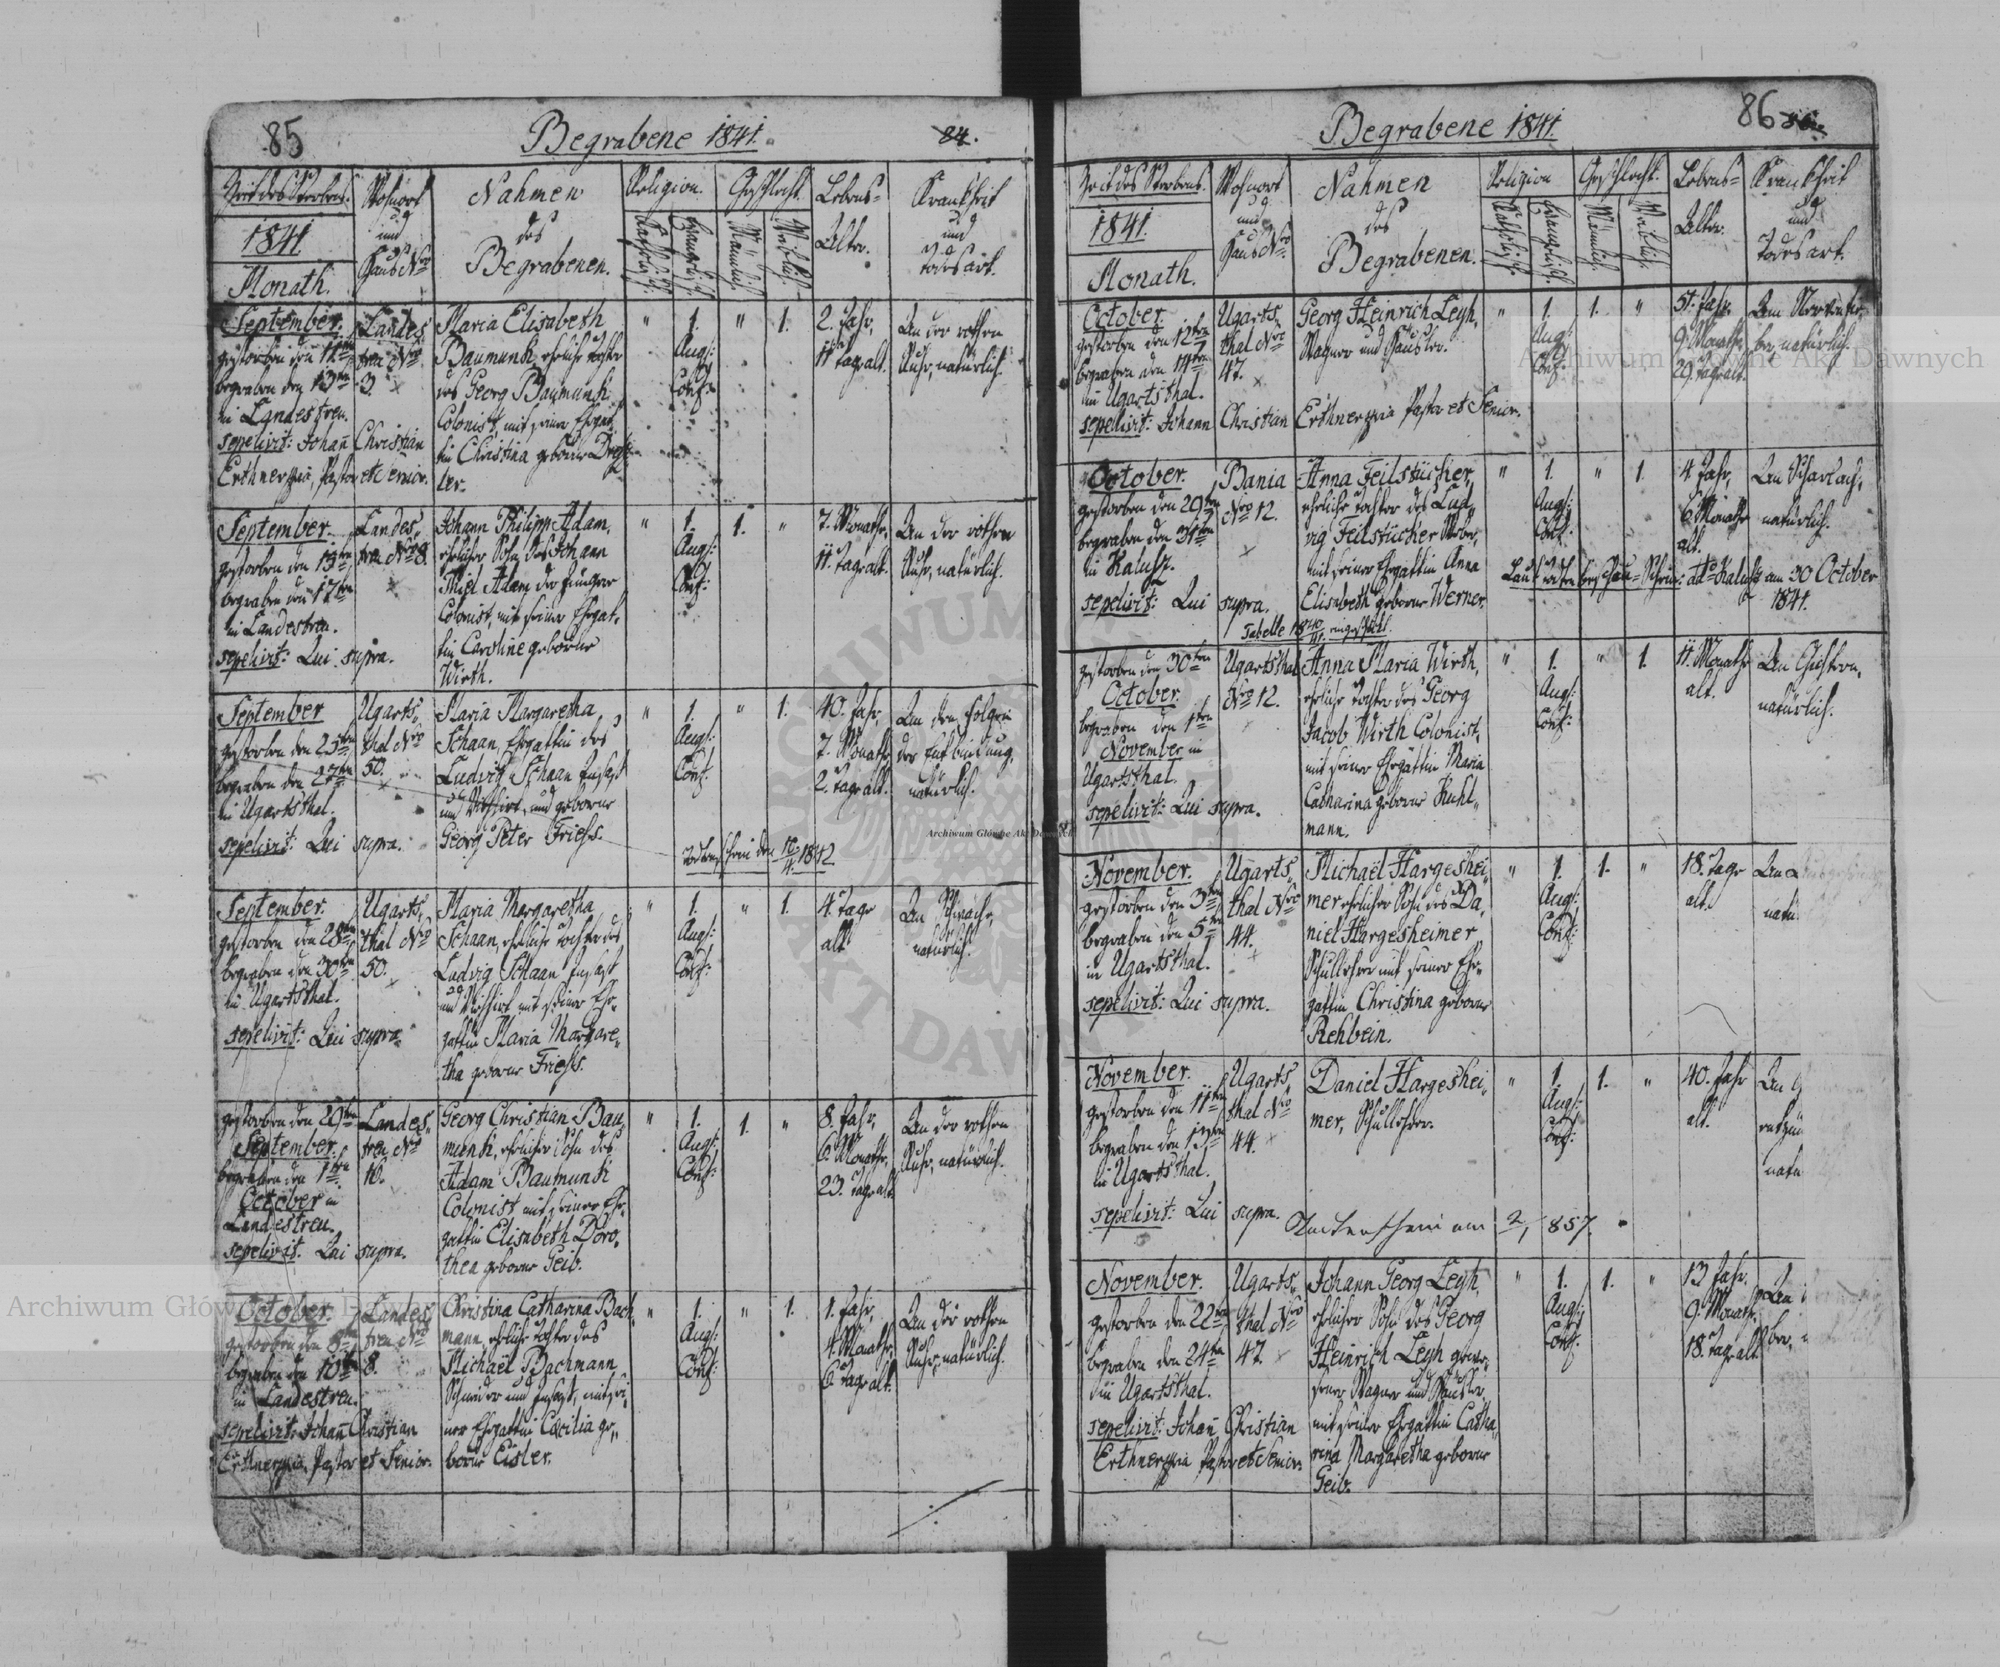 85
Begrabene 1841.
84.
Zeit des Sterbens.
1841.
Monath.
Wohnort
und
Haus Nro
Nahmen
des
Begrabenen.
Religion.
Katholisch.
Evangelisch.
Geschlecht.
Männlich.
Weiblich.
Lebens-
Alter.
Krankheit
und
Todesart.
September.
gestorben den 11ten
begraben den 13ten
in Landestreu.
sepelivit: Johañ Christian
Erthner mpia, Pastor et Senior.
Landes,
treu Nro
3.
Maria Elisabeth
Baumunk, ehliche Tochter
des Georg Baumunk
Colonist, mit seiner Ehegat,
tin Christina geborne Drechs,
ler.
" 1. " 1.
Augs:
Conf:
2. Jahr,
11 Tage alt.
An der rothen
Ruhr, natürlich.
September.
gestorben den 15ten
begraben den 17ten
in Landestreu.
sepelivit: Qui supra.
Landes,
treu Nro 8.
Johann Philipp Adam,
ehlicher Sohn des Johann
Thiel Adam der jüngere
Colonist, mit seiner Ehegat,
tin Caroline geborne
Wirth.
" 1. 1. "
Augs:
Conf:
7. Monathe,
11. Tage alt.
An der rothen
Ruhr, natürlich.
September
gestorben den 25ten
begraben den 27ten
in Ugartsthal.
sepelivit: Qui supra.
Ugarts,
thal Nro
50.
Maria Margaretha
Schaan, Ehegattin des
Ludwig Schaan Insass
und Wirth, und geborne
Georg Peter Friess.
" 1. " 1.
Augs:
Conf:
40. Jahr,
7. Monathe,
2. Tage alt.
An den Folgen
der Entbindung,
natürlich.
Todtenschein den 12/4 1842.
September.
gestorben den 28ten
begraben den 30ten
in Ugartsthal.
sepelivit: Qui supra.
Ugarts,
thal Nro
50.
Maria Margaretha
Schaan, ehliche Tochter des
Ludwig Schaan Insass
und Wirth mit seiner Ehe,
gattin Maria Margare,
tha geborne Friess.
" 1. " 1.
Augs:
Conf:
4. Tage
alt.
An Schwäche,
natürlich.
gestorben den 29ten
September.
begraben den 1ten
October in
Landestreu.
sepelivit: Qui supra.
Landes,
treu Nro
16.
Georg Christian Bau,
munk, ehlicher Sohn des
Adam Baumunk
Colonist mit seiner Ehe,
gattin Elisabeth Doro,
thea geborne Geib.
" 1. 1. "
Augs:
Conf:
8. Jahr,
6. Monathe,
23. Tage alt.
An der rothen
Ruhr, natürlich.
October.
gestorben den 8ten
begraben den 10ten
in Landestreu.
sepelivit: Johañ Christian
Erthner mpia, Pastor et Senior.
Landes,
treu Nro
8.
Christina Catharina Bach,
mann, ehliche Tochter des
Michaël Bachmann
Schneider und Insass, mit sei,
ner Ehegattin Cæcilia ge,
borne Eisler.
" 1. " 1.
Augs:
Conf:
1. Jahr,
4. Monathe,
6. Tage alt.
An der rothen
Ruhr, natürlich.
Begrabene 1841.
86
Zeit des Sterbens.
1841.
Monath.
Wohnort
und
Haus Nro
Nahmen
des
Begrabenen.
Religion
Katholisch.
Evangelisch.
Geschlecht.
Männlich.
Weiblich.
Lebens-
Alter.
Krankheit
und
Todesart.
October.
gestorben den 12ten
begraben den 14ten
in Ugartsthal.
sepelivit: Johann Christian Erthner mpia Pastor et Senior.
Ugarts,
thal Nro
47.
Georg Heinrich Leyh,
Wagner und Häusler.
" 1. 1. "
Augs:
Conf:
51. Jahr,
9. Monathe,
29. Tage alt.
Am Nervenfie,
ber, natürlich.
October.
gestorben den 29ten
begraben den 31ten
in Kalusz.
sepelivit: Qui supra.
Bania
Nro 12.
Anna Feilstücher,
ehliche Tochter des Lud,
wig Feilstücher Weber,
mit seiner Ehegattin Anna
Elisabeth geborne Werner.
" 1. " 1.
Augs:
Conf:
4 Jahr,
6 Monathe
alt.
Am Scharlach,
natürlich.
Laut Todtenbeschau-Schein: dto Kalusz am 30 October
1841.
Tabelle 1840/41. eingeschickt.
gestorben den 30ten
October.
begraben den 1ten
November in
Ugartsthal.
sepelivit: Qui supra.
Ugartsthal
Nro 12.
Anna Maria Wirth,
ehliche Tochter des Georg
Jacob Wirth Colonist,
mit seiner Ehegattin Maria
Catharina geborne Kuhl,
mann.
" 1. " 1.
Augs:
Conf:
11. Monathe
alt.
natürlich.
November.
gestorben den 3ten
begraben den 5ten
in Ugartsthal.
sepelivit: Qui supra.
Ugarts,
thal Nro
44.
Michaël Hargeshei,
mer ehlicher Sohn des Da,
niel Hargesheimer
Schullehrer mit seiner Ehe,
gattin Christina geborne
Rehbein.
" 1. 1. "
Augs:
Conf:
18. Tage
alt.
An
natü
November.
gestorben den 11ten
begraben den 13ten
in Ugartsthal.
sepelivit: Qui supra.
Ugarts,
thal Nro
44.
Daniel Hargeshei,
mer, Schullehrer.
" 1. 1. "
Augs:
Conf:
40. Jahr
alt.
An
entzün
natü
November.
gestorben den 22ten
begraben den 24ten
in Ugartsthal.
sepelivit: Johañ Christian
Erthner mpia Pastor et Senior.
Ugarts,
thal Nro
47.
Johann Georg Leyh,
ehlicher Sohn des Georg
Heinrich Leyh gewe,
sener Wagner und Häusler
mit seiner Ehegattin Catha,
rina Margaretha geborne
Geib.
" 1. 1. "
Augs:
Conf:
13 Jahr,
9. Monathe,
18. Tage alt.
ber,
Archiwum Główne Akt Dawnych
Archiwum Główne Akt Dawnych
Archiwum Główne Akt Dawnych
ARCHIWUM
AKT DAW